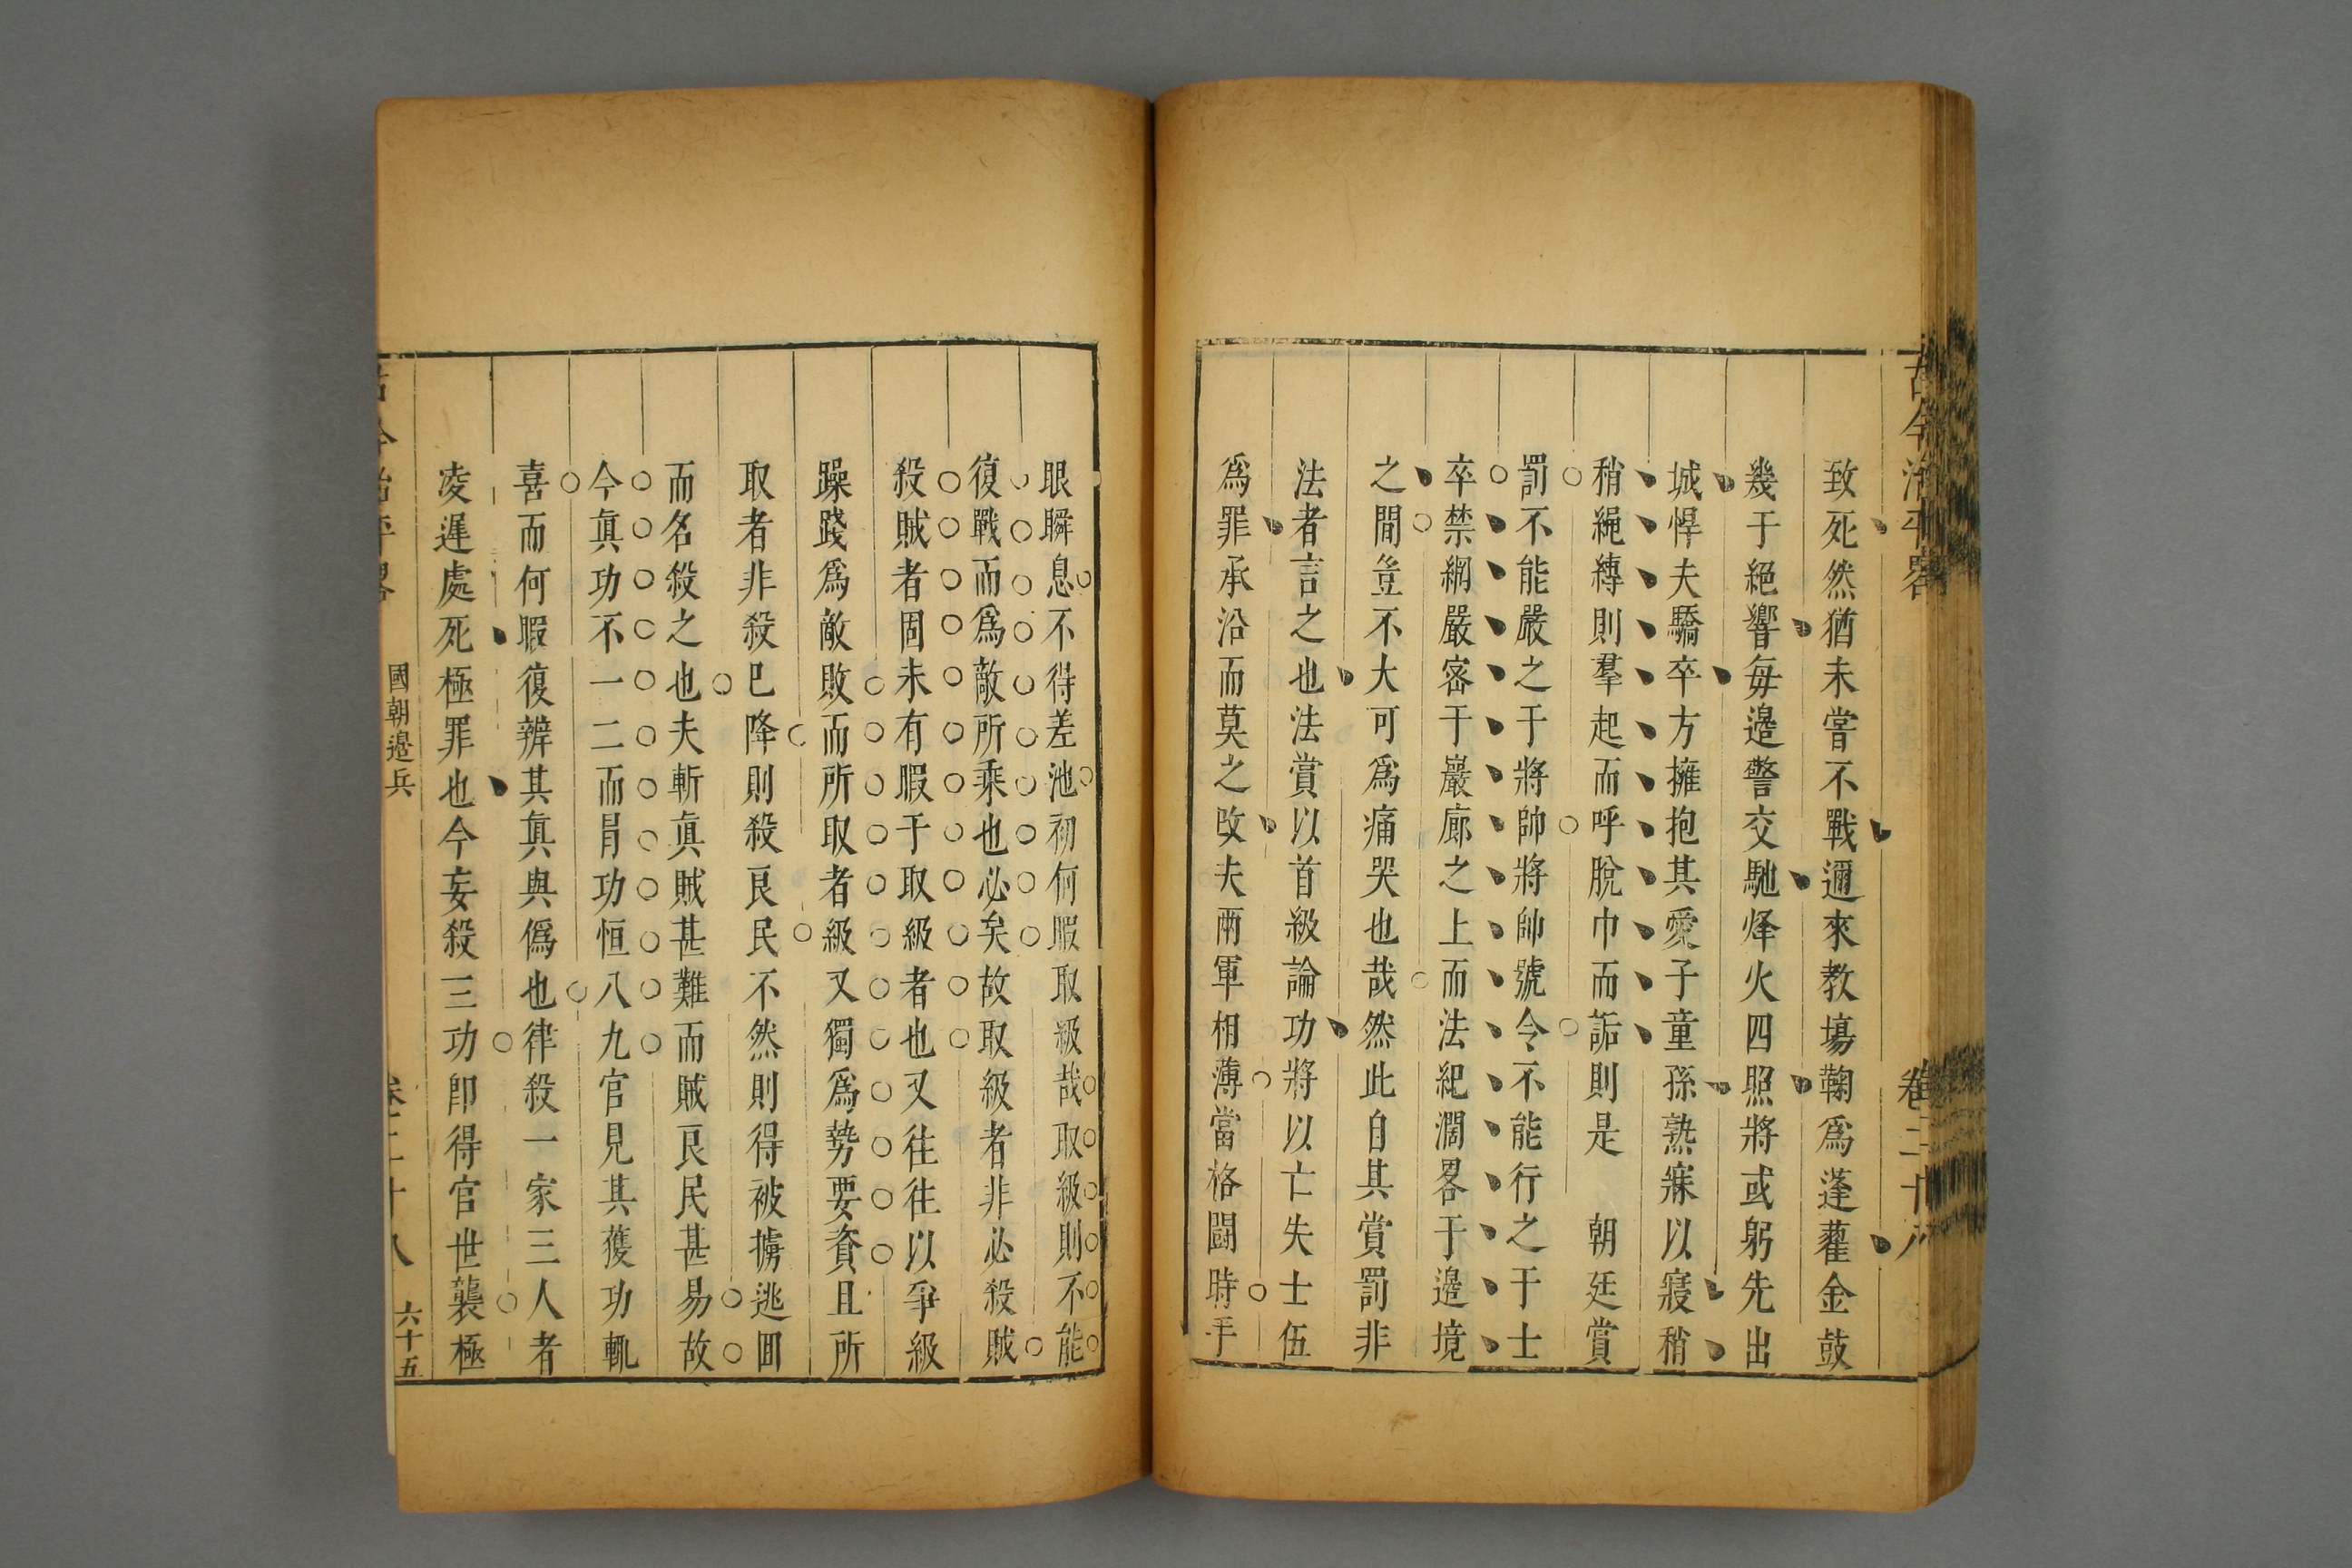 古今治平畧
卷二十八
致死然猶未嘗不戰邇來教塲鞠爲蓬藿金鼓
幾于絕響每邉警交馳烽火四照將或躬先出
城悍夫驕卒方擁抱其愛子童孫熟寐以寢稍
稍繩縛則羣起而呼脫巾而詬則是　朝廷賞
罰不能嚴之于將帥將帥號令不能行之于士
卒禁網嚴密于巖廊之上而法紀濶畧于邉境
之間豈不大可爲痛哭也哉然此自其賞罰非
法者言之也法賞以首級論功將以亡失士伍
爲罪承沿而莫之改夫兩軍相薄當格鬪時手
眼瞬息不得差池初何暇取級哉取級則不能
復戰而爲敵所乘也必矣故取級者非必殺賊
殺賊者固未有暇于取級者也又往往以爭級
躁踐爲敵敗而所取者級又獨爲勢要資且所
取者非殺巳降則殺良民不然則得被擄逃囬
而名殺之也夫斬眞賊甚難而賊良民甚易故
今眞功不一二而冐功恒八九官見其獲功輒
喜而何暇復辨其眞與僞也律殺一家三人者
凌遲處死極罪也今妄殺三功卽得官世襲極
古今治平畧
國朝邉兵
卷二十八
六十五